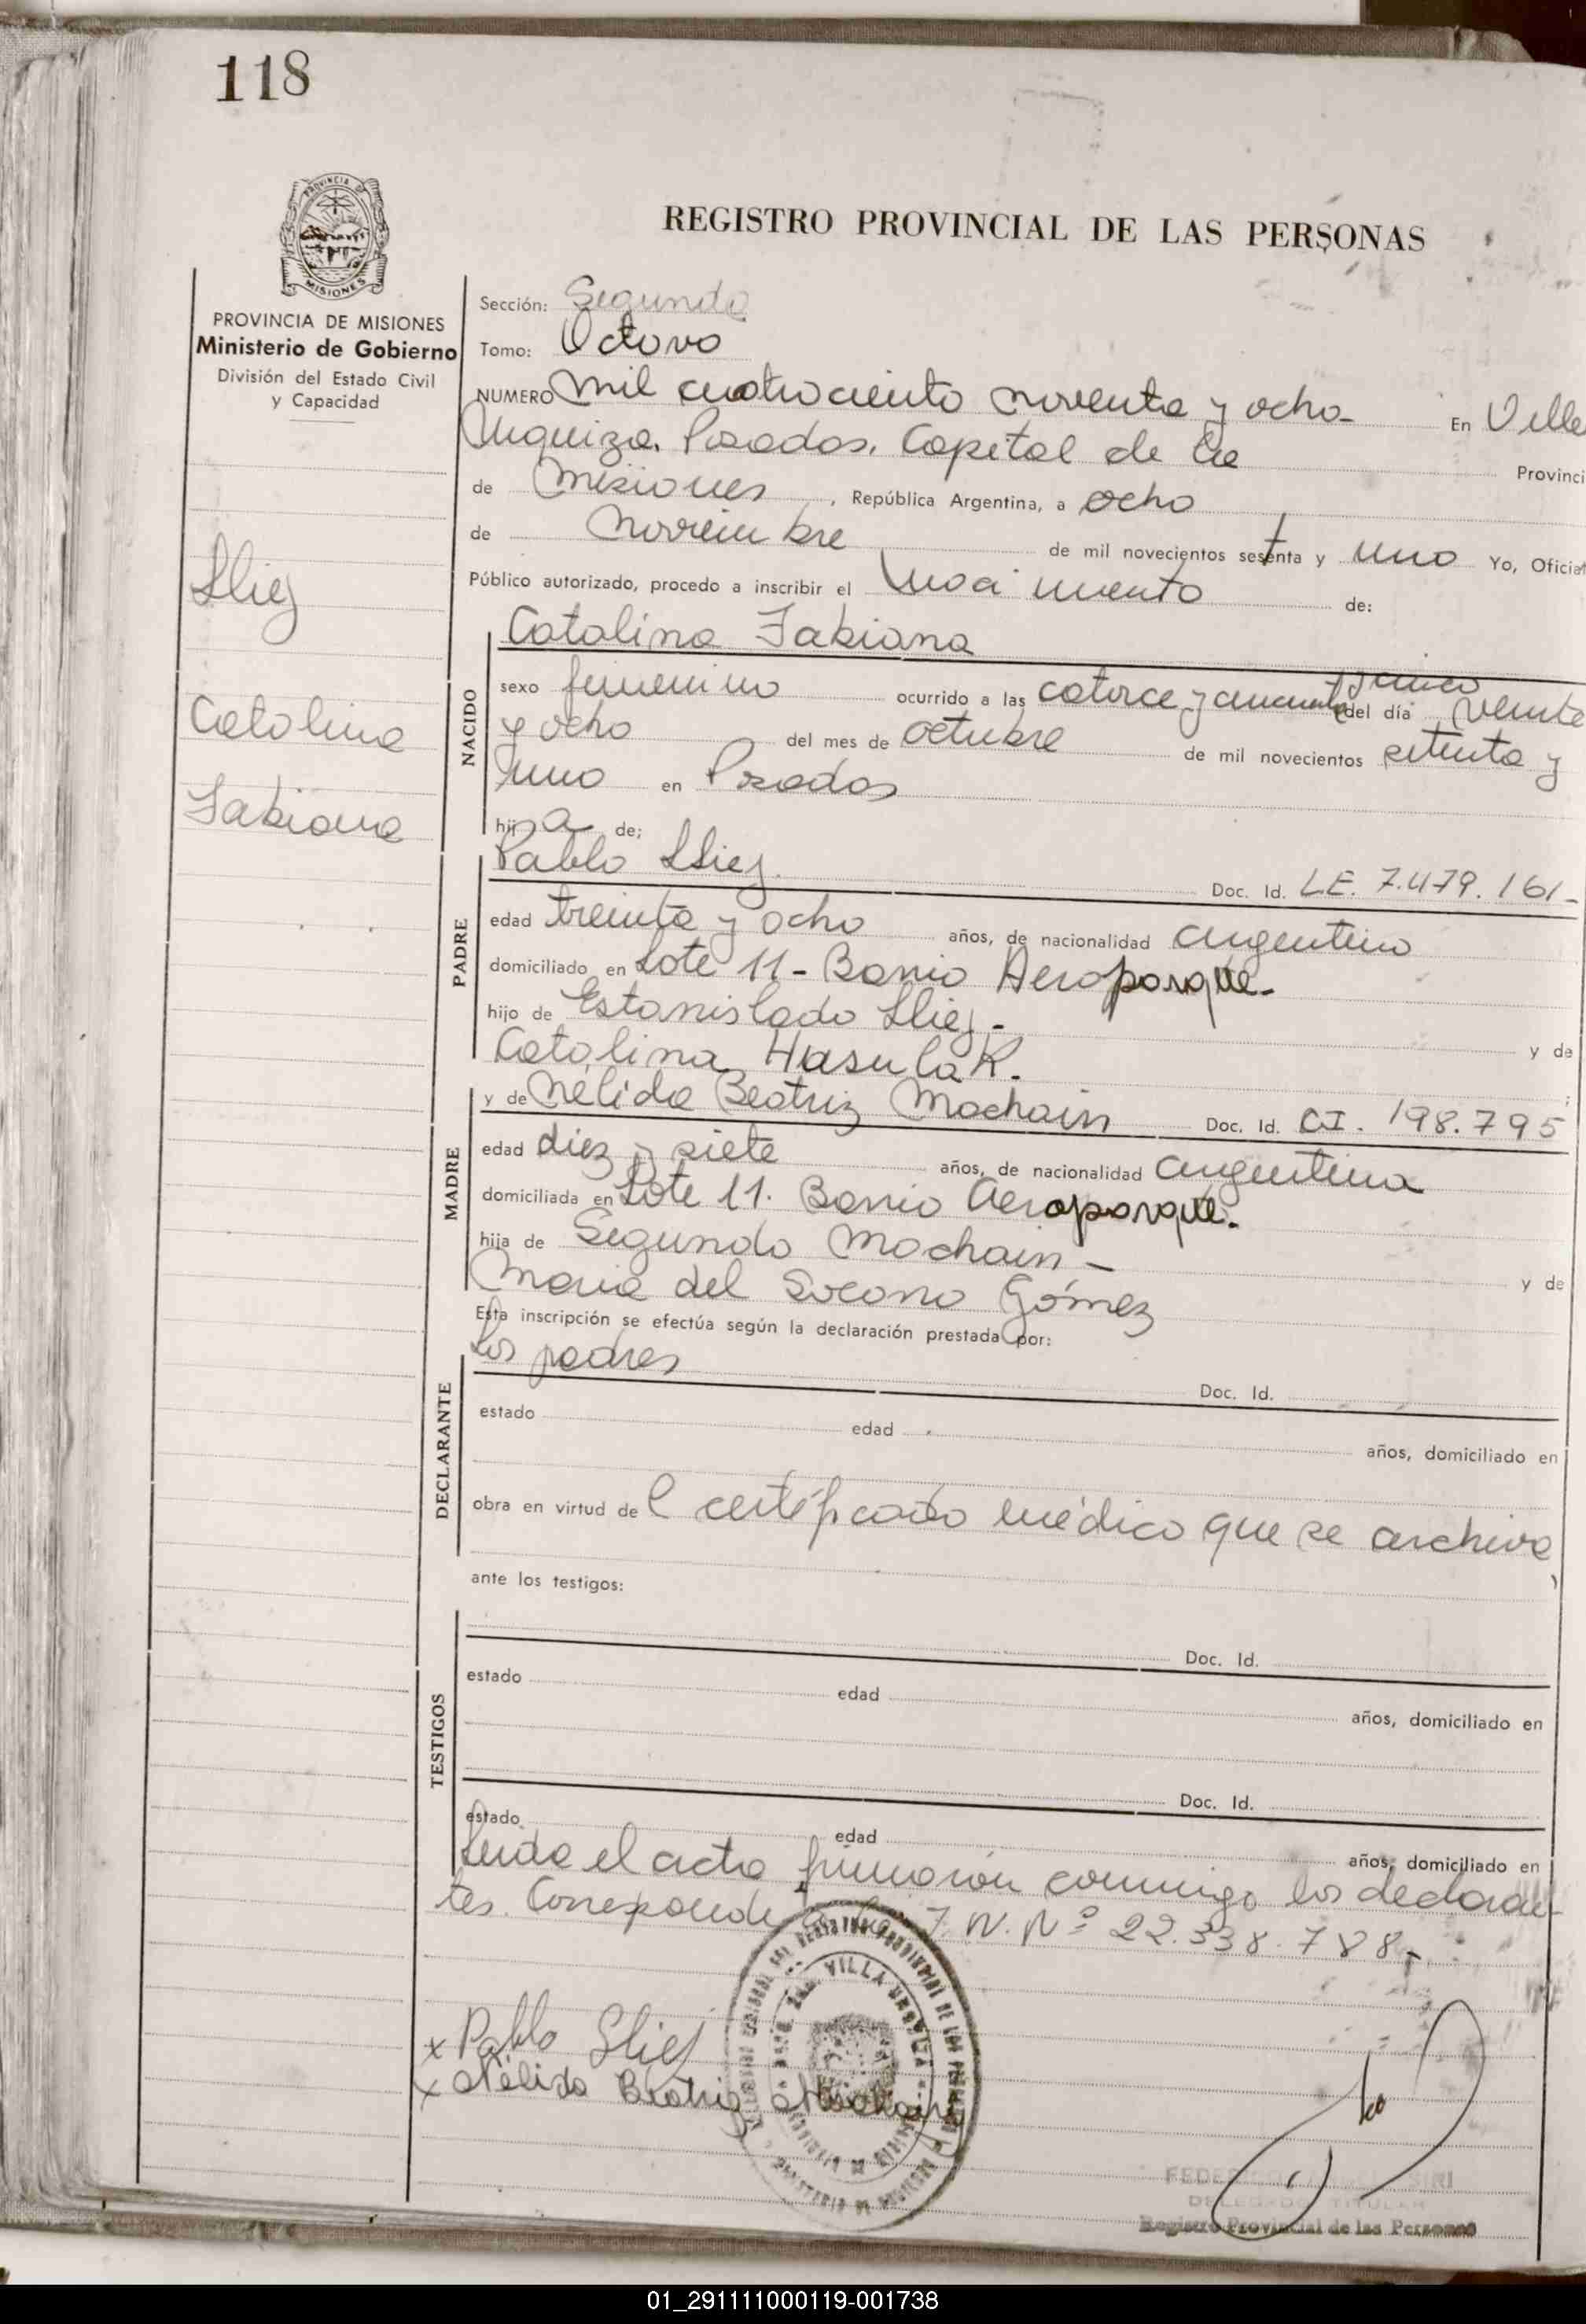 118
PROVINCIA DE
MISIONES
PROVINCIA DE MISIONES
Ministerio de Gobierno
División del Estado Civil
y Capacidad
Sliej
Catalina
Fabiana
REGISTRO PROVINCIAL DE LAS PERSONAS
Sección: Segunda
Tomo: Octavo
NUMERO mil cuatrociento noventa y ocho- En Villa
Urquiza. Posadas. Capital de la Provinci
de Misiones, República Argentina, a ocho
de Noviembre de mil novecientos setenta y uno Yo, Oficial
Público autorizado, procedo a inscribir el nacimiento de:
NACIDO
Catalina Fabiana
sexo femenino ocurrido a las catorce y cincuenta y cinco del día veinte
y ocho del mes de octubre de mil novecientos setenta y
uno en Posadas
hija de;
PADRE
Pablo Sliej. Doc. Id. L.E. 7.479.161-
edad treinta y ocho años, de nacionalidad argentino
domiciliado en Lote 11- Barrio Aeroparque-
hijo de Estanislado Sliej- y de
Catalina HasulaK.
MADRE
y de Nélida Beatriz Mochain Doc. Id. CI. 198.795
edad diez y siete años, de nacionalidad argentina
domiciliada en Lote 11. Barrio Aeroparque.
hija de Segundo Mochain- y de
Maria del Socorro Gómez
Esta inscripción se efectúa según la declaración prestada por:
DECLARANTE
Los padres Doc. Id.
estado edad años, domiciliado en
obra en virtud del certificado médico que se archiva,
ante los testigos:
TESTIGOS
Doc. Id.
estado edad años, domiciliado en
Doc. Id.
estado edad años, domiciliado en
Leida el acta firmaron conmigo los declaran-
tes. Corresponde N. Nº 22.338.788-
VILLA URQUIZA
x Pablo Sliej
x Nélida Beatriz Mochain
DELEGADO TITULAR
Registro Provincial de las Personas
01_291111000119-001738